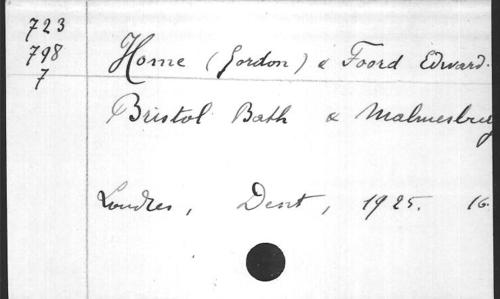 723
798
7
Home (Gordon) & Foord Edward.
Bristol Bath & Malmesbury
Londres, Dent, 1925. 16